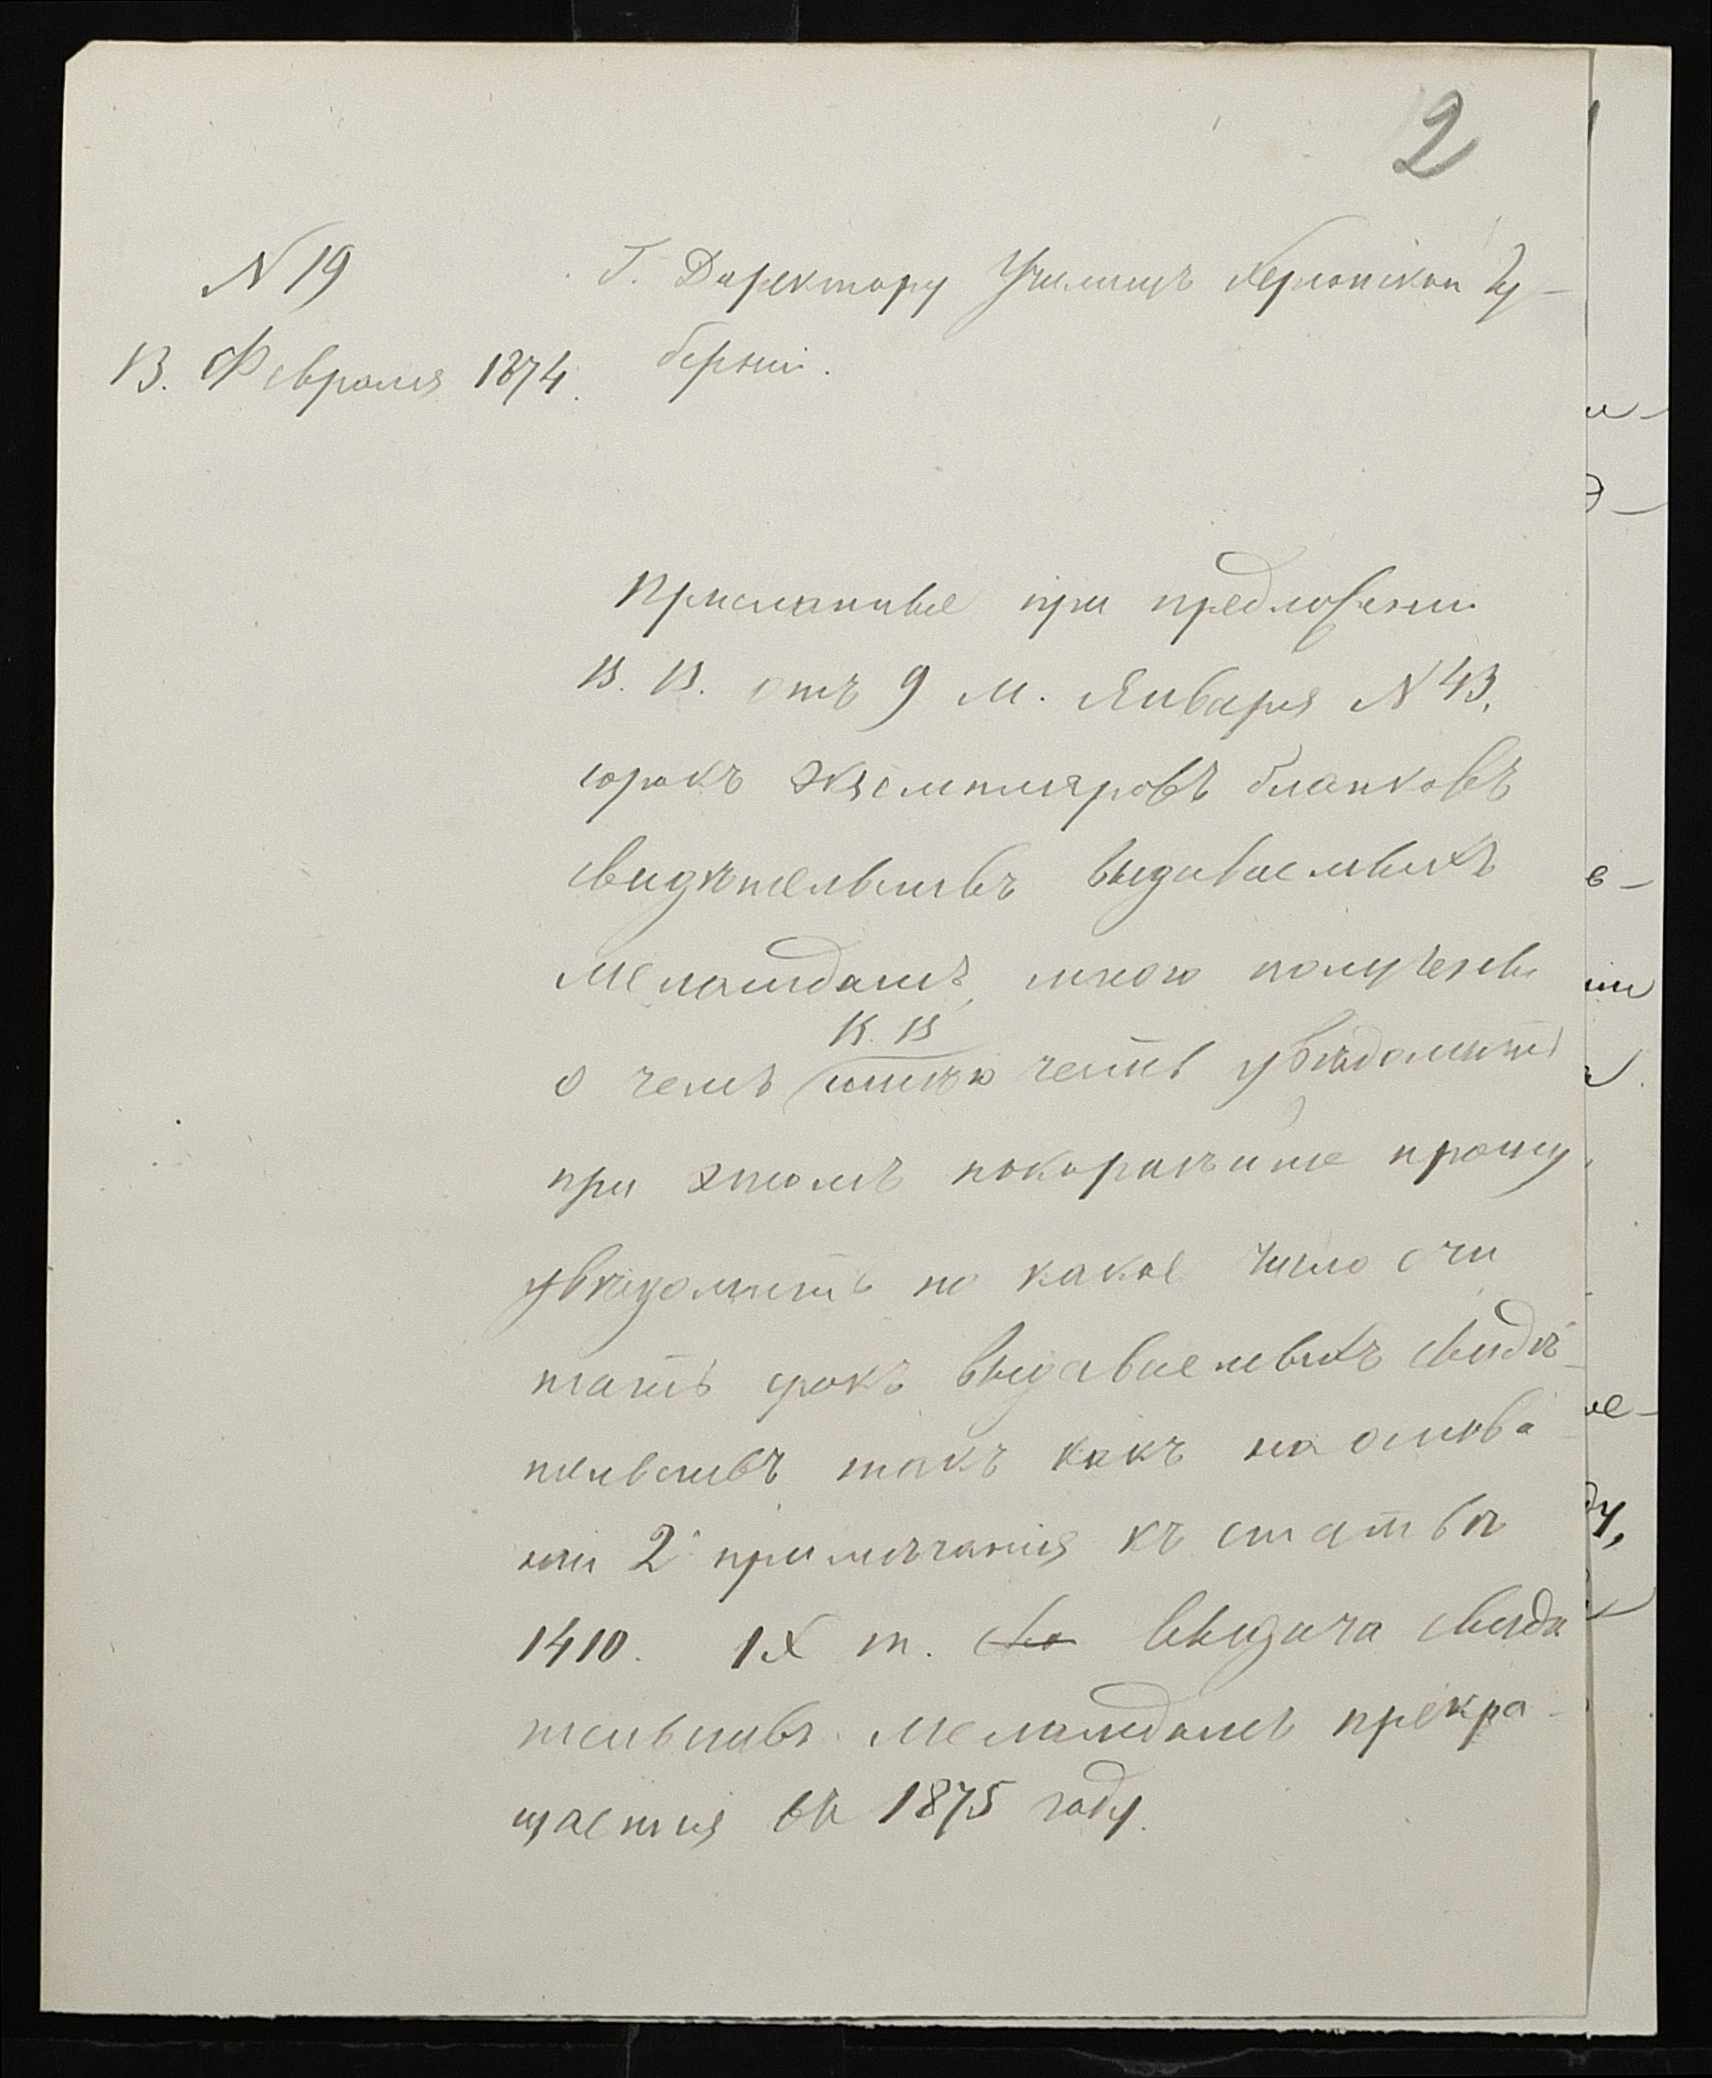 2
N 19
Г. Директору Училищъ Херсонской Гу-
13. Февраля 1874.
берніи.
Присланные при предложеніи
В. В. отъ 9 м. Января N 43.
сорокъ экземпляровъ бланковъ
свидѣтельствъ выдаваемыхъ
меламдамъ, мною получены
В. В
о чемъ имѣю честь увѣдомить
при этомъ покорнѣйше прошу
увѣдомить по какое число счи
тать срокъ выдаваемыхъ свидѣ-
тельствъ такъ какъ на основа
ніи 2 примѣчанія къ статьѣ
1410. IX т. выдача свидѣ
тельствъ меламдамъ прекра-
щается въ 1875 году.